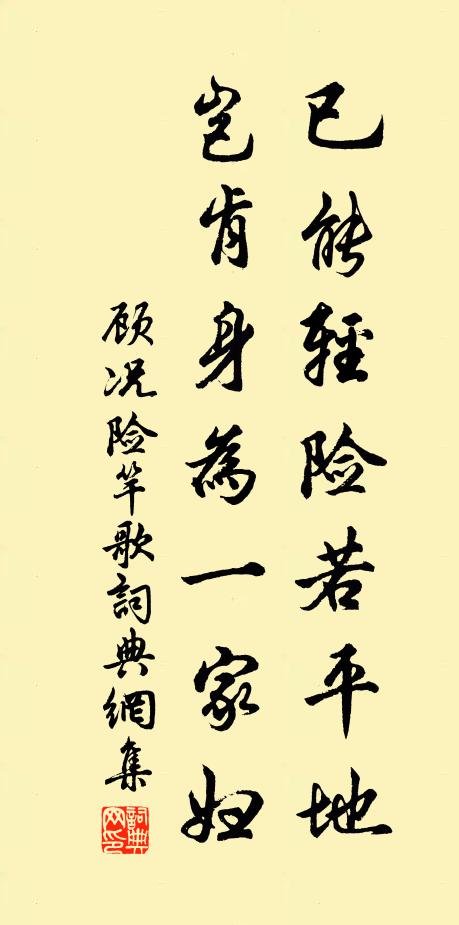 已能轻险若平地
岂肯身為一家妇
顾况险竿歌詞典網集
詞典网印